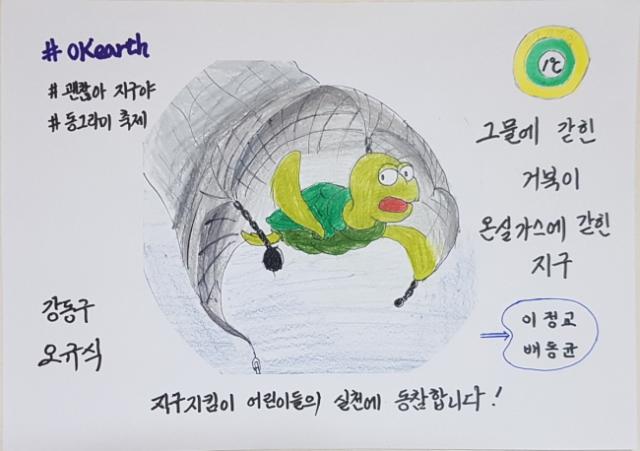 # OKearth
# 괜찮아 지구야
# 동그라미 축제
1℃
그물에 갇힌
거북이
온실가스에 갇힌
지구
강동구
오규식
⇒
이정교
배동균
지구지킴이 어린이들의 실천에 동참합니다!